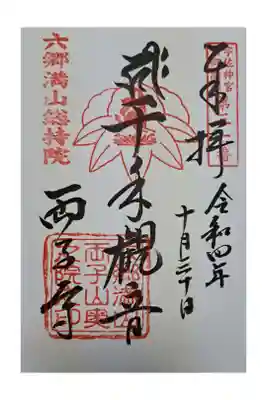 奉拝
令和四年
十月三十日
千手観音
六郷満山総持院
両子寺